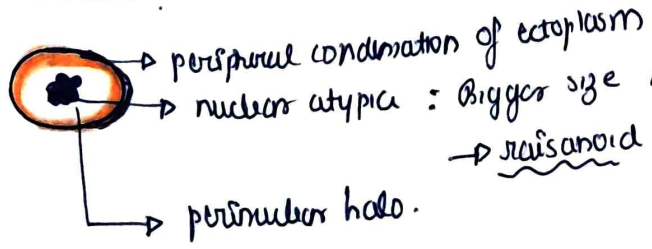 peripheral condensation of ectoplasm
nuclear atypia : Bigger size
raisanoid
perinuclear halo.